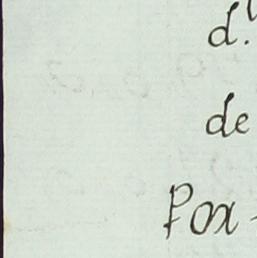 d.
de
Por-